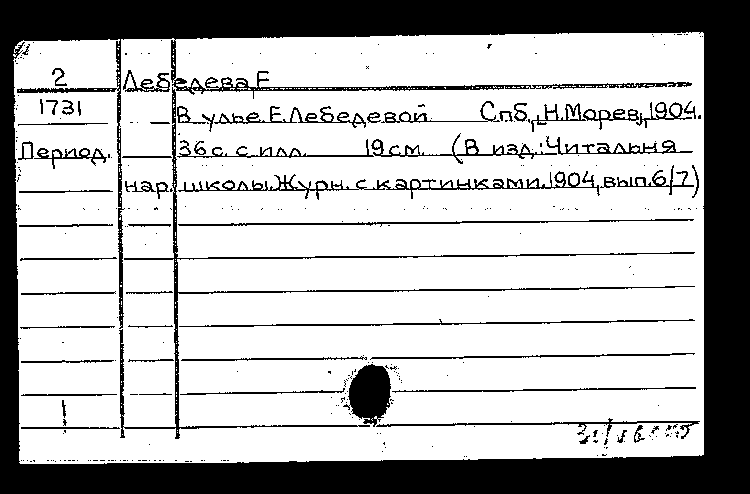 2 Лебедева, Е
1731 В улье. Е. Лебедевой. Спб, "Н. Морев", 1904.
Период. 36 с. с илл. 19 см. (В изд.: Читальня
нар. школы. Журн. с картинками. 1904, вып. 6/7)